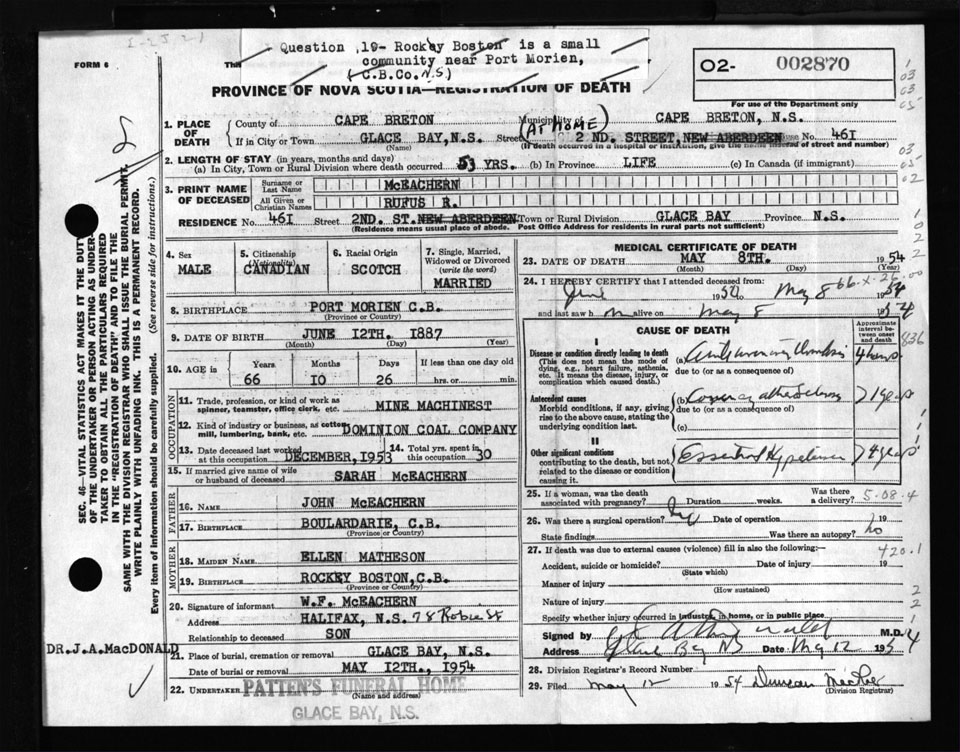 1-21 21
Question 19- Rockey Boston is a small
community near Port Morien,
(C.B.Co. N.S.)
FORM 6
This
O2- 002870
PROVINCE OF NOVA SCOTIA—REGISTRATION OF DEATH
For use of the Department only
1. PLACE OF DEATH
County of CAPE BRETON Municipality of CAPE BRETON, N.S.
If in City or Town GLACE BAY, N.S. Street (AT HOME) 2 ND. STREET, NEW ABERDEEN House No. 461
(Name) (If death occurred in a hospital or institution, give the name instead of street and number)
2. LENGTH OF STAY (in years, months and days)
(a) In City, Town or Rural Division where death occurred 53 YRS. (b) In Province LIFE (c) In Canada (if immigrant)
3. PRINT NAME OF DECEASED
Surname or Last Name McEACHERN
All Given or Christian Names RUFUS R.
RESIDENCE No. 461 Street 2ND. ST. NEW ABERDEEN Town or Rural Division GLACE BAY Province N.S.
(Residence means usual place of abode. Post Office Address for residents in rural parts not sufficient)
4. Sex MALE
5. Citizenship (Nationality) CANADIAN
6. Racial Origin SCOTCH
7. Single, Married, Widowed or Divorced (write the word) MARRIED
8. BIRTHPLACE PORT MORIEN C.B.
(Province or Country)
9. DATE OF BIRTH JUNE 12TH. 1887
(Month) (Day) (Year)
10. AGE is Years 66 Months 10 Days 26 If less than one day old hrs. or min.
OCCUPATION
11. Trade, profession, or kind of work as spinner, teamster, office clerk, etc. MINE MACHINEST
12. Kind of industry or business, as cotton mill, lumbering, bank, etc. DOMINION COAL COMPANY
13. Date deceased last worked at this occupation DECEMBER, 1953
14. Total yrs. spent in this occupation 30
15. If married give name of wife or husband of deceased SARAH McEACHERN
FATHER
16. NAME JOHN McEACHERN
17. BIRTHPLACE BOULARDARIE, C.B.
(Province or Country)
MOTHER
18. MAIDEN NAME ELLEN MATHESON
19. BIRTHPLACE ROCKEY BOSTON, C.B.
(Province or Country)
20. Signature of informant W.F. McEACHERN
Address HALIFAX, N.S. 78 Robie St
Relationship to deceased SON
DR. J.A. MacDONALD
21. Place of burial, cremation or removal GLACE BAY, N.S.
Date of burial or removal MAY 12TH., 1954
22. UNDERTAKER PATTEN'S FUNERAL HOME
(Name and address)
GLACE BAY, N.S.
MEDICAL CERTIFICATE OF DEATH
23. DATE OF DEATH MAY 8TH. 1954
(Month) (Day) (Year)
24. I HEREBY CERTIFY that I attended deceased from
June 1950 May 8 1954
66-x-26-00
and last saw h m alive on May 8 1954
CAUSE OF DEATH
Approximate interval between onset and death
I
Disease or condition directly leading to death
(This does not mean the mode of dying, e.g., heart failure, asthenia, etc. It means the disease, injury, or complication which caused death.)
(a) 4 hours
due to (or as a consequence of)
Antecedent causes
Morbid conditions, if any, giving rise to the above cause, stating the underlying condition last.
(b) Coronary > 1 year
due to (or as a consequence of)
(c)
II
Other significant conditions
contributing to the death, but not related to the disease or condition causing it.
Essential Hypertension > 4 years
836
25. If a woman, was the death associated with pregnancy? Duration weeks. Was there a delivery? 5-08-4
26. Was there a surgical operation? No Date of operation 19
State findings Was there an autopsy? No
27. If death was due to external causes (violence) fill in also the following:— 420.1
Accident, suicide or homicide? Date of injury 19
(State which)
Manner of injury
(How sustained)
Nature of injury
Specify whether injury occurred in industry, in home, or in public place
Signed by M.D.
Address Glace Bay NS Date May 12 1954
28. Division Registrar's Record Number
29. Filed May 12 1954 Duncan
(Division Registrar)
SEC. 46—VITAL STATISTICS ACT MAKES IT THE DUTY
OF THE UNDERTAKER OR PERSON ACTING AS UNDER-
TAKER TO OBTAIN ALL THE PARTICULARS REQUIRED
IN THE "REGISTRATION OF DEATH" AND TO FILE THE
SAME WITH THE DIVISION REGISTRAR WHO SHALL ISSUE THE BURIAL PERMIT.
WRITE PLAINLY WITH UNFADING INK. THIS IS A PERMANENT RECORD.
Every item of information should be carefully supplied. (See reverse side for instructions.)